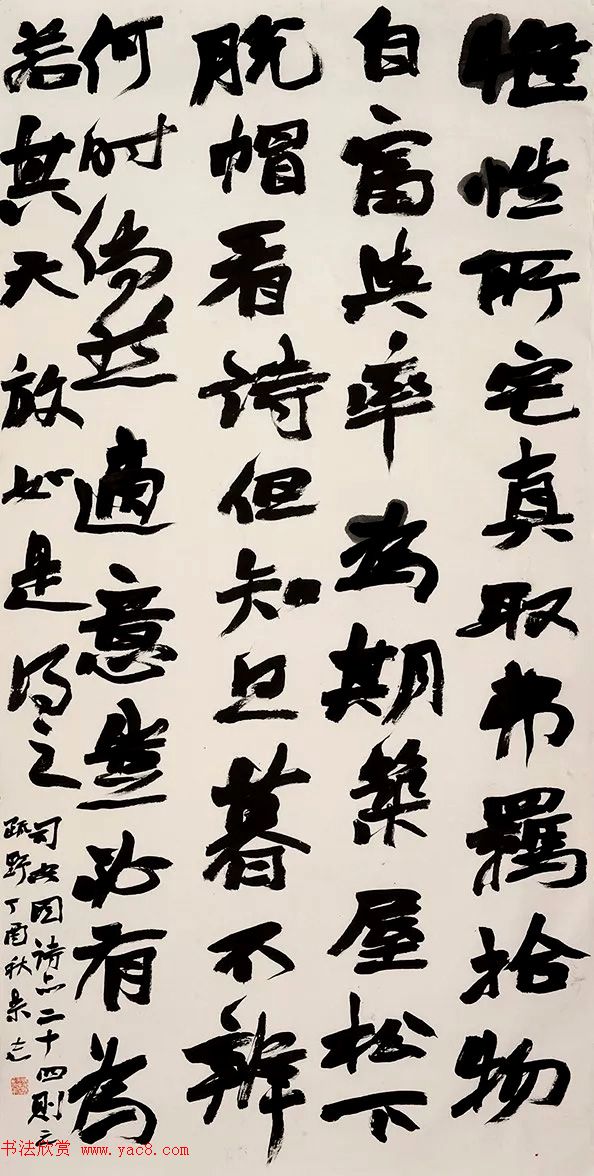 惟性所宅真取弗羈拾物
自富與率為期築屋松下
脫帽看詩但知旦暮不辨
何时倘然適意豈必有為
若其天放如是得之
司空图诗品二十四则之
疏野丁酉秋
书法欣赏 www.yac8.com